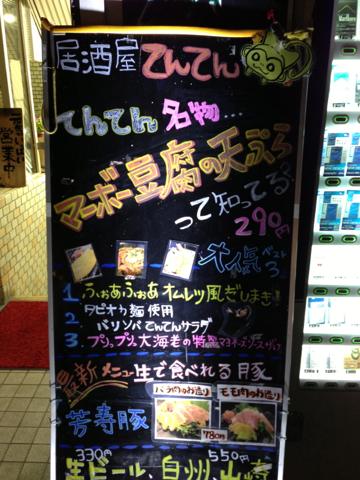 居酒屋 てんてん
てんてん 名物…
マーボー豆腐の天ぷら
って知ってる?
290円
人気ベスト3
1. ふぁあふぁあオムレツ風だしまき!
2. タピオカ麺使用
パリソバてんてんサラダ
3. プリップリッ大海老の特製マヨネーズソース
最新メニュー 生で食べれる豚
芳寿豚
バラ肉のお造り モモ肉のお造り
780円
330円 550円
生ビール、白州、山崎
営業中